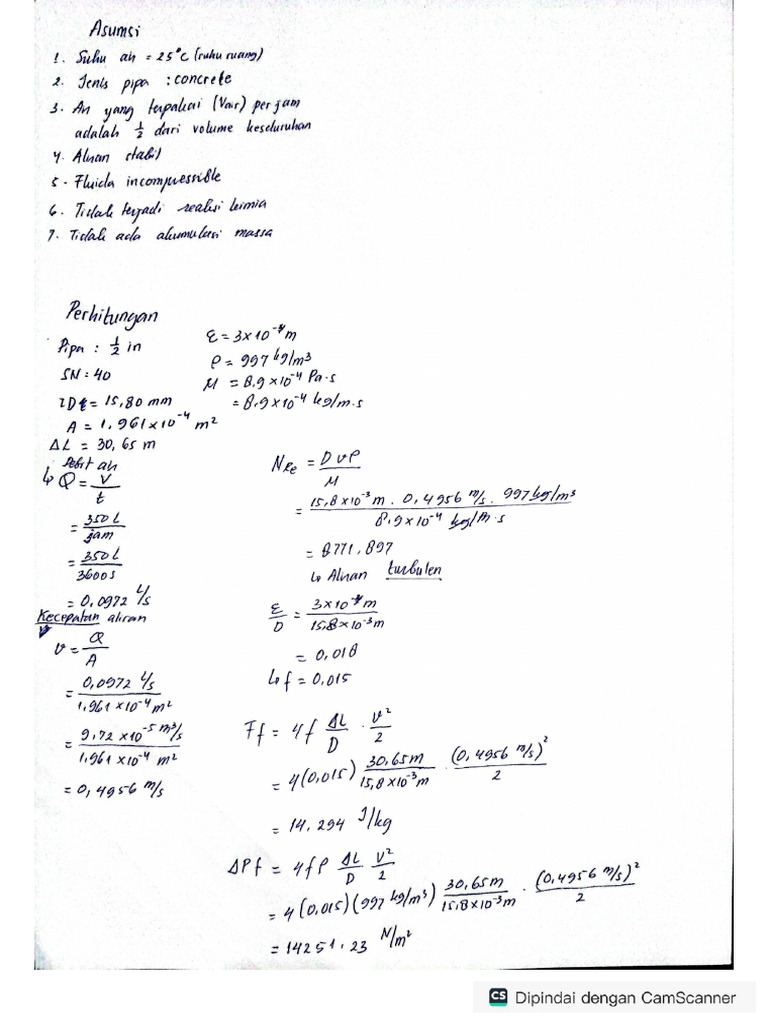 Asumsi
1. Suhu air = 25°C (suhu ruang)
2. Jenis pipa : concrete
3. Air yang terpakai (Vair) per jam
adalah 1/2 dari volume keseluruhan
4. Aliran stabil
5. Fluida incompressible
6. Tidak terjadi reaksi kimia
7. Tidak ada akumulasi massa
Perhitungan
Pipa : 1/2 in
SN : 40
ID = 15,80 mm
A = 1,961 x 10⁻⁴ m²
ΔL = 30,65 m
ε = 3 x 10⁻⁴ m
ρ = 997 kg/m³
μ = 8,9 x 10⁻⁴ Pa·s
= 8,9 x 10⁻⁴ kg/m·s
Debit air
↳ Q = V/t
= 350 L/jam
= 350 L/3600 s
= 0,0972 L/s
Kecepatan aliran
v = Q/A
= 0,0972 L/s / 1,961 x 10⁻⁴ m²
= 9,72 x 10⁻⁵ m³/s / 1,961 x 10⁻⁴ m²
= 0,4956 m/s
NRe = D v ρ / μ
= 15,8 x 10⁻³ m . 0,4956 m/s . 997 kg/m³ / 8,9 x 10⁻⁴ kg/m·s
= 8771,897
↳ Aliran turbulen
ε/D = 3 x 10⁻⁴ m / 15,8 x 10⁻³ m
= 0,018
↳ f = 0,015
Ff = 4f ΔL/D . v²/2
= 4(0,015) 30,65 m / 15,8 x 10⁻³ m . (0,4956 m/s)² / 2
= 14,294 J/kg
ΔPf = 4fρ ΔL/D v²/2
= 4(0,015)(997 kg/m³) 30,65 m / 15,8 x 10⁻³ m . (0,4956 m/s)² / 2
= 14251,23 N/m²
CS Dipindai dengan CamScanner